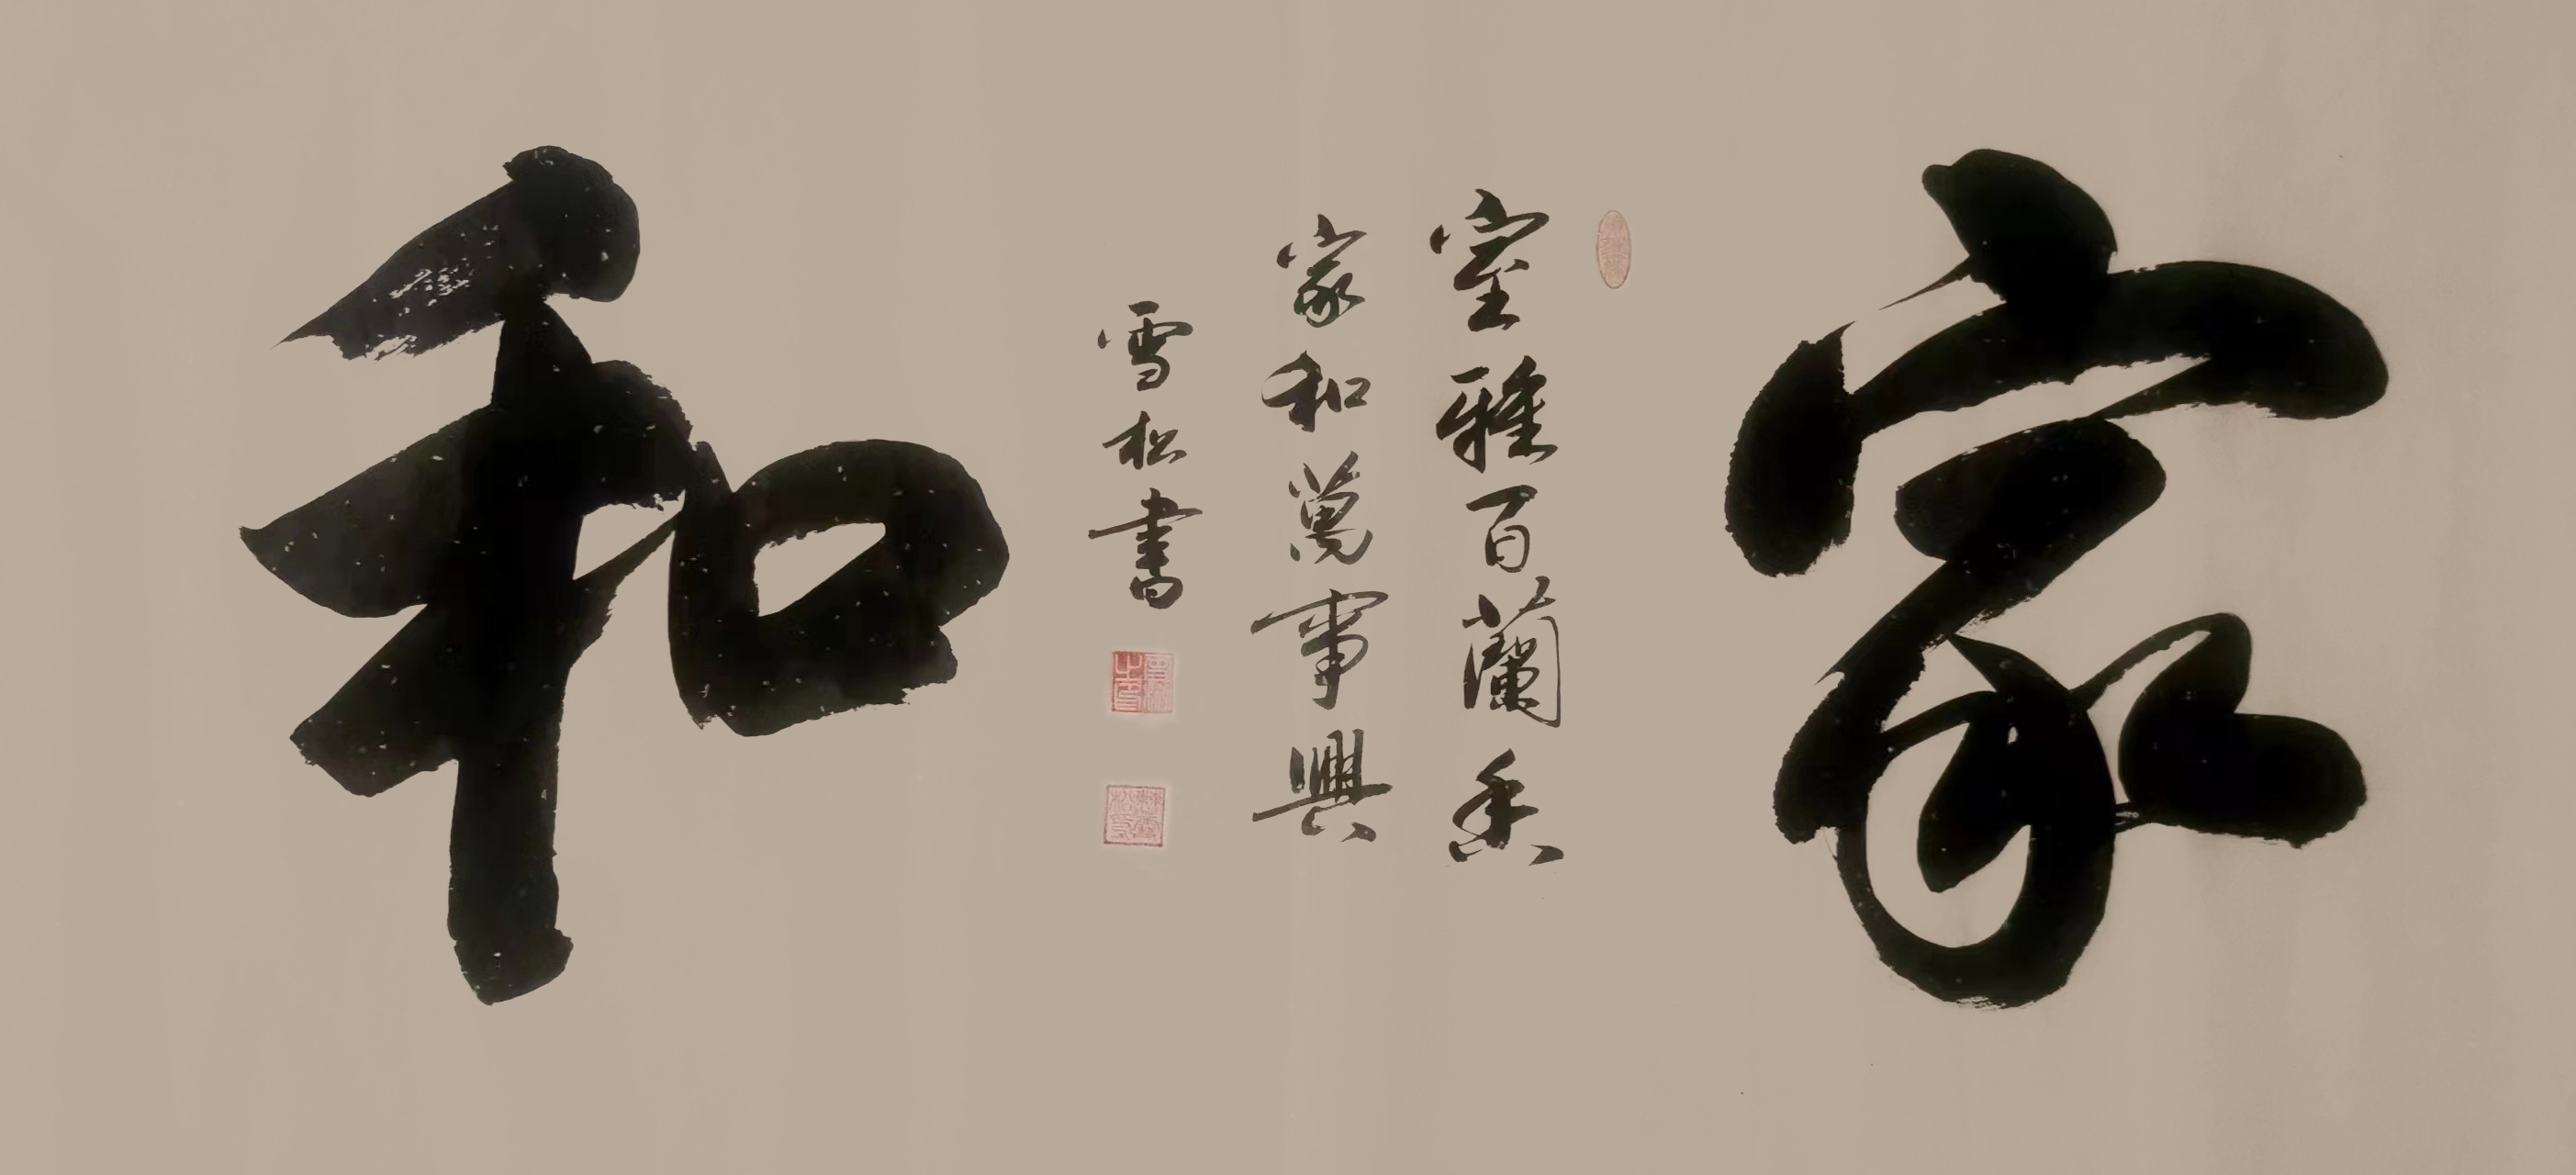 家
室雅百蘭香
家和萬事興
雪松書
和